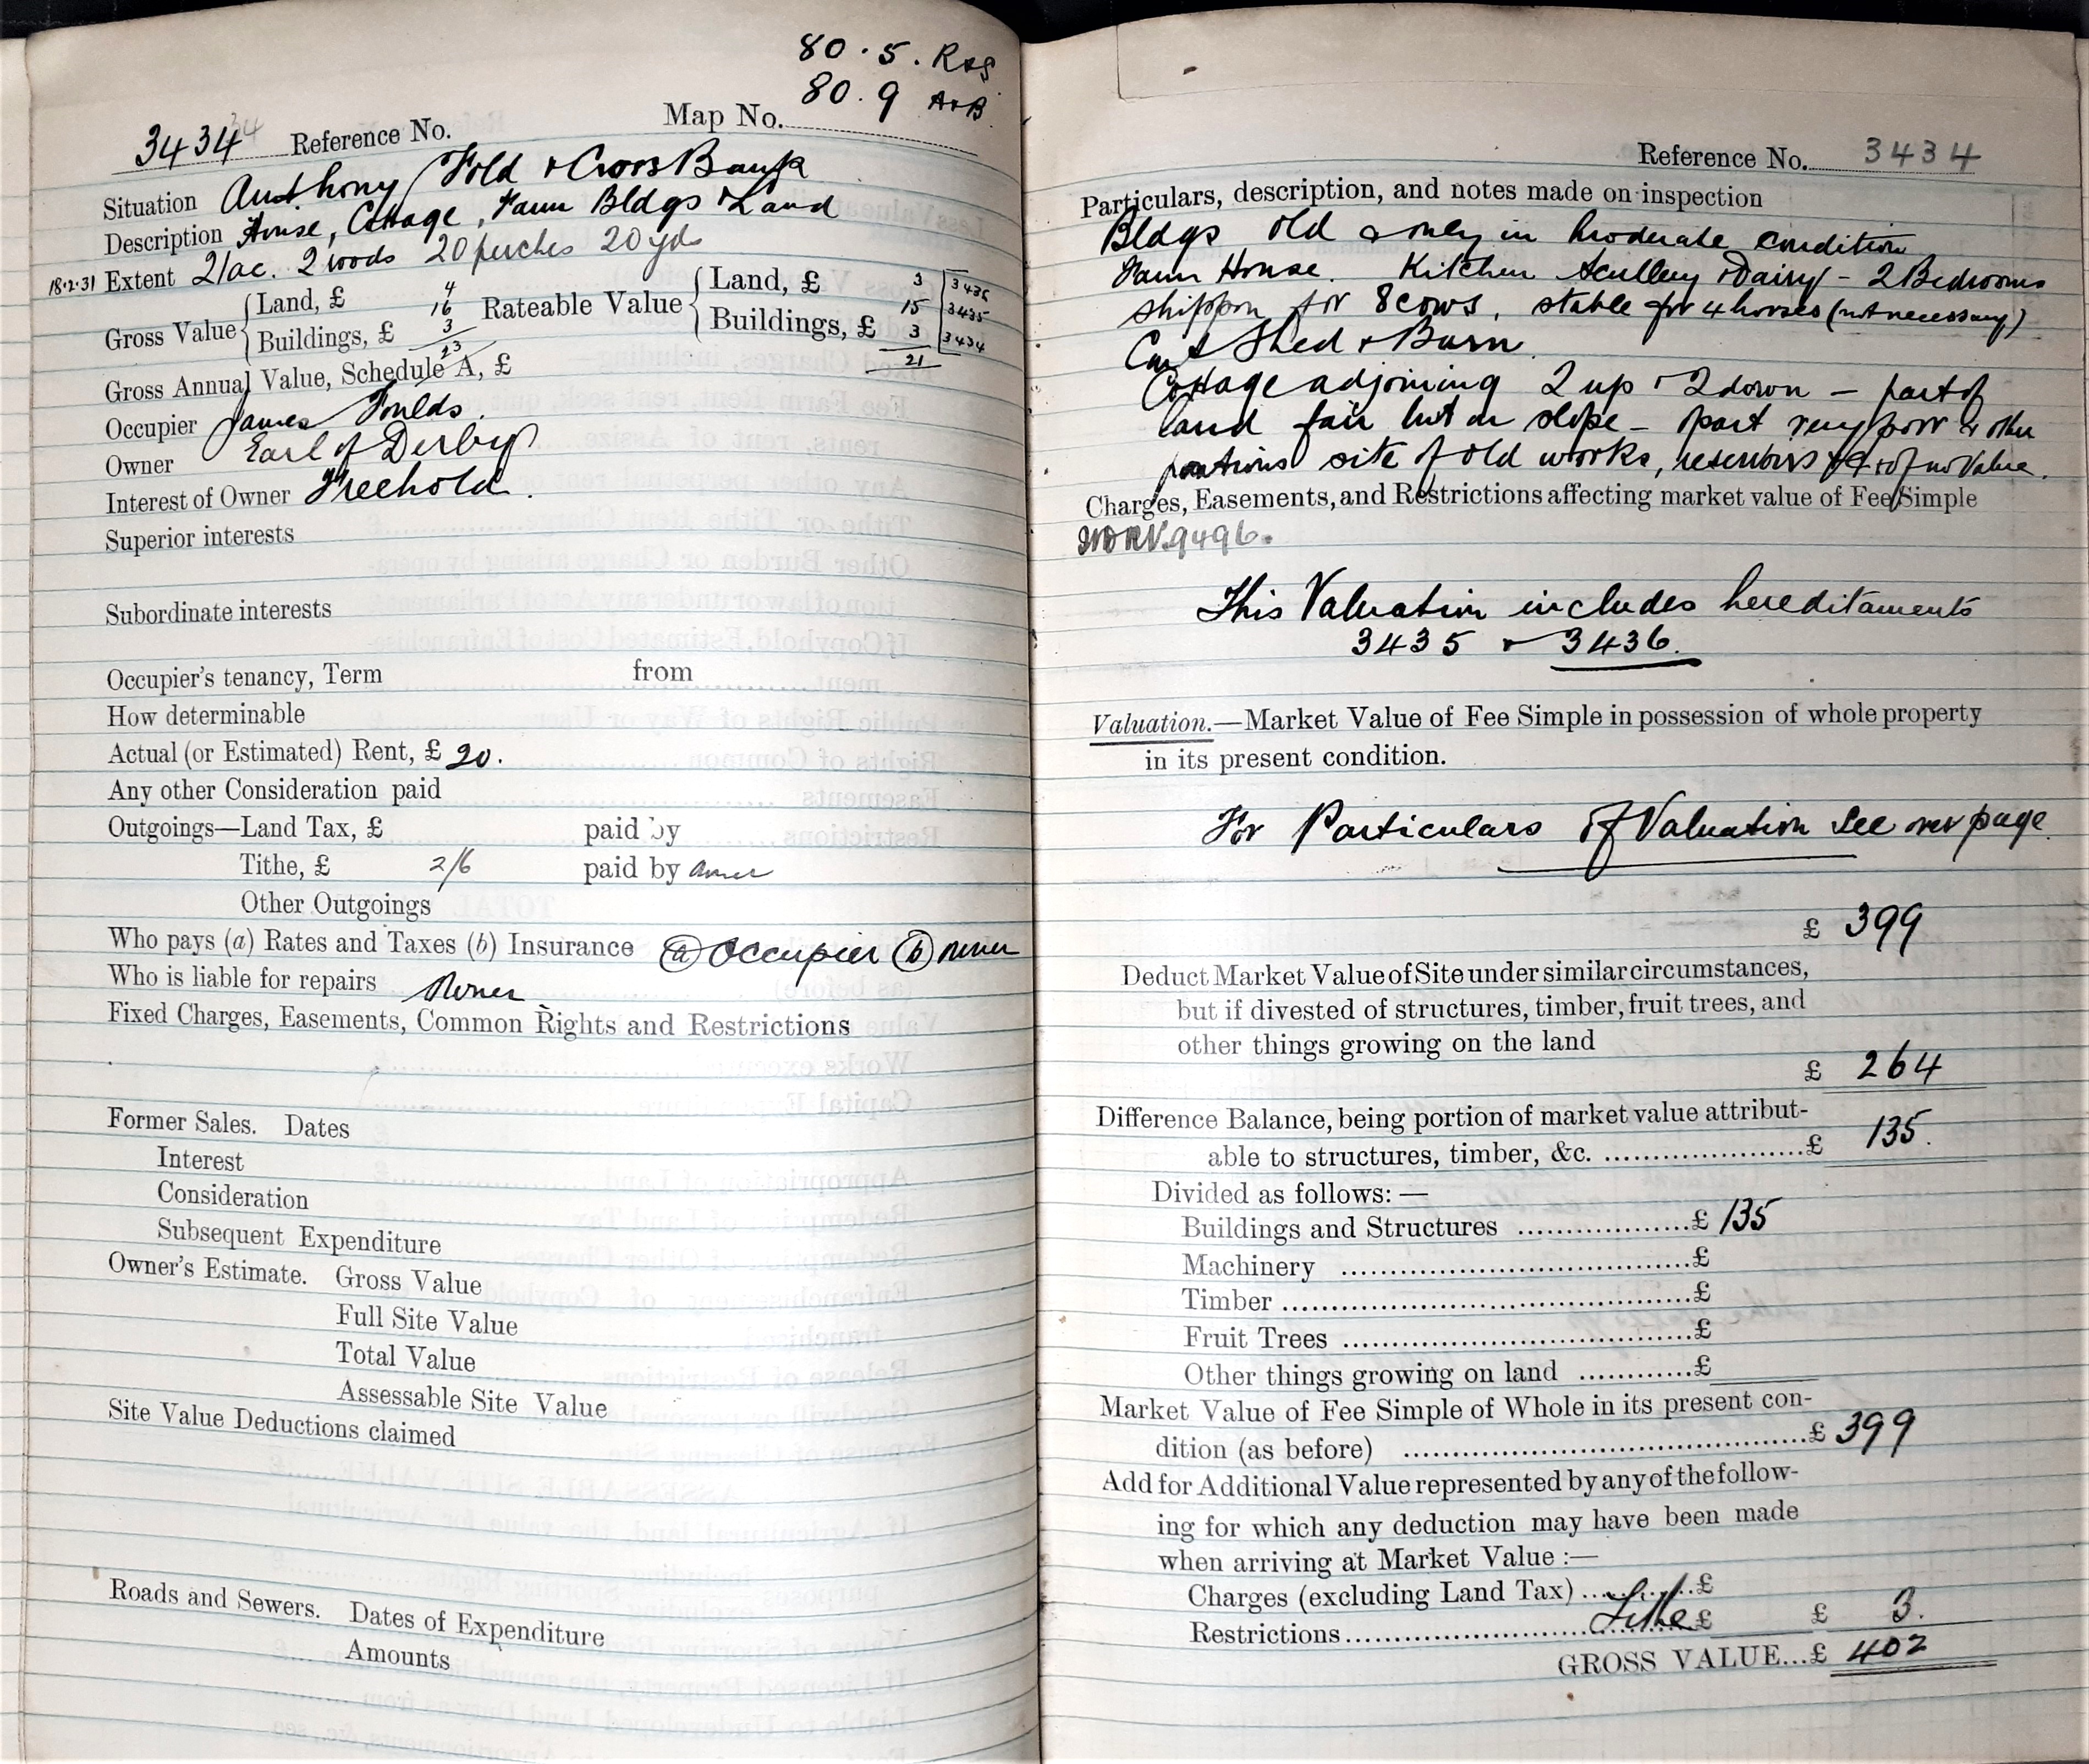 80 . 5 . R & S
80 . 9 A & B
3434 Reference No. Map No.
Situation Anthony Fold & Cross Bank
Description House, Cottage, Farm Bldgs & Land
18.2.31 Extent 21ac. 2 roods 20 perches 20 yds
Gross Value Land, £ 4 Rateable Value Land, £ 3 3436
16 15 3435
Buildings, £ 3 Buildings, £ 3 3434
23 21
Gross Annual Value, Schedule A, £
Occupier James Foulds.
Owner Earl of Derby
Interest of Owner Freehold.
Superior interests
Subordinate interests
Occupier's tenancy, Term from
How determinable
Actual (or Estimated) Rent, £ 20.
Any other Consideration paid
Outgoings—Land Tax, £ paid by
Tithe, £ 2/6 paid by owner
Other Outgoings
Who pays (a) Rates and Taxes (b) Insurance (a) Occupier (b) owner
Who is liable for repairs Owner
Fixed Charges, Easements, Common Rights and Restrictions
Former Sales. Dates
Interest
Consideration
Subsequent Expenditure
Owner's Estimate. Gross Value
Full Site Value
Total Value
Assessable Site Value
Site Value Deductions claimed
Roads and Sewers. Dates of Expenditure
Amounts
Reference No. 3434
Particulars, description, and notes made on inspection
Bldgs old & only in moderate condition
Farm House. Kitchen Scullery & Dairy – 2 Bedrooms
shippon for 8 cows, stable for 4 horses (not necessary)
Cart Shed & Barn.
Cottage adjoining 2 up & 2 down – part of
land fair but on slope – part very poor & other
portions site of old works, reservoirs &c & of no value.
Charges, Easements, and Restrictions affecting market value of Fee Simple
9496.
This Valuation includes hereditaments
3435 & 3436.
Valuation.—Market Value of Fee Simple in possession of whole property
in its present condition.
For Particulars of Valuation see over page.
£ 399
Deduct Market Value of Site under similar circumstances,
but if divested of structures, timber, fruit trees, and
other things growing on the land
£ 264
Difference Balance, being portion of market value attribut-
able to structures, timber, &c. ......................£ 135.
Divided as follows: —
Buildings and Structures ..................£ 135
Machinery ......................................£
Timber ............................................£
Fruit Trees ......................................£
Other things growing on land ............£
Market Value of Fee Simple of Whole in its present con-
dition (as before) ............................................£ 399
Add for Additional Value represented by any of the follow-
ing for which any deduction may have been made
when arriving at Market Value :—
Charges (excluding Land Tax) ............£
Restrictions.............. Tithe £ £ 3.
GROSS VALUE...£ 402